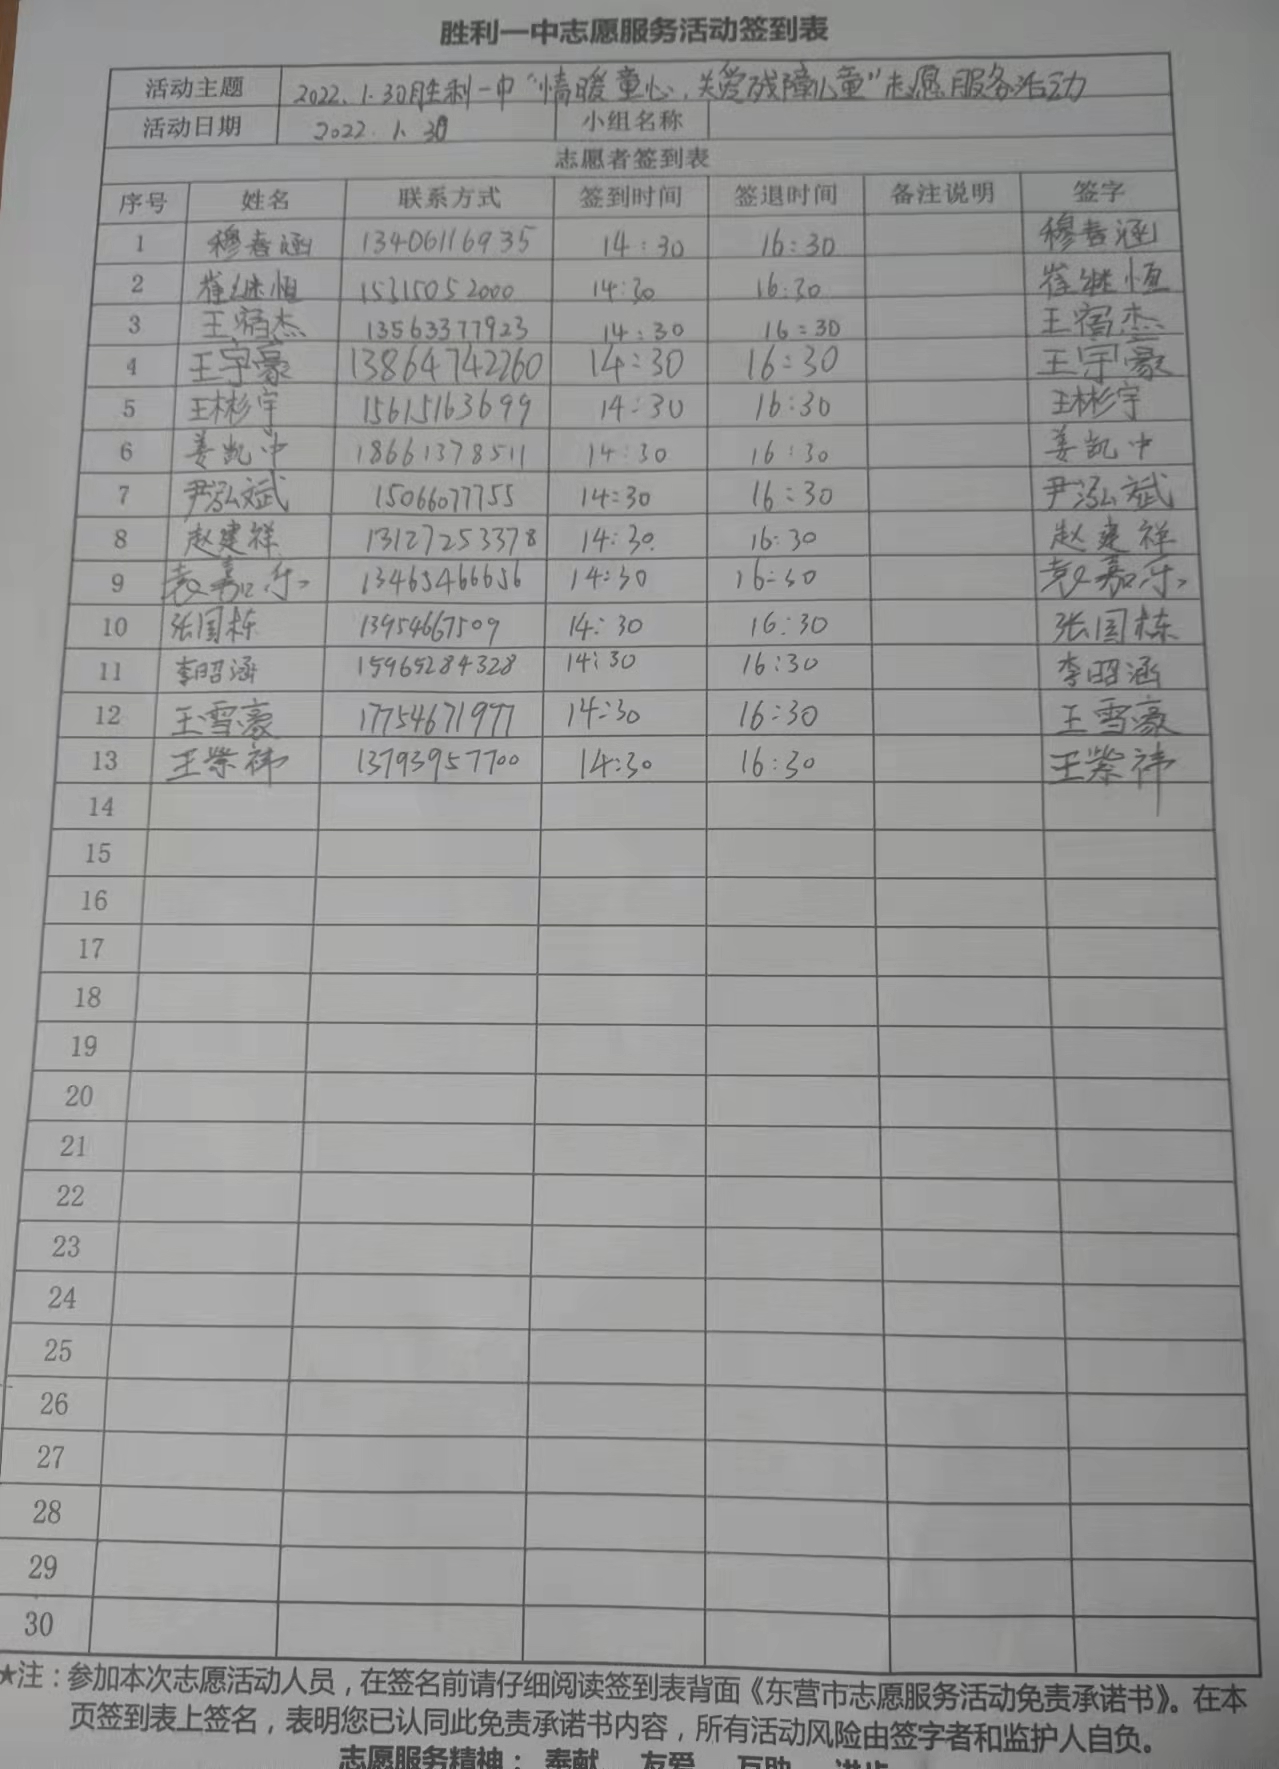 胜利一中志愿服务活动签到表
活动主题 2022.1.30胜利一中“情暖童心,关爱残障儿童”志愿服务活动
活动日期 2022.1.30 小组名称
志愿者签到表
序号 姓名 联系方式 签到时间 签退时间 备注说明 签字
1 穆春涵 13406116935 14:30 16:30 穆春涵
2 崔继恒 15315052000 14:30 16:30 崔继恒
3 王宿杰 13563377923 14:30 16:30 王宿杰
4 王宇豪 13864742260 14:30 16:30 王宇豪
5 王彬宇 15615163699 14:30 16:30 王彬宇
6 姜凯中 18661378511 14:30 16:30 姜凯中
7 尹泓斌 15066077755 14:30 16:30 尹泓斌
8 赵建祥 13127253378 14:30 16:30 赵建祥
9 袁嘉乐 13465466656 14:30 16:30 袁嘉乐
10 张国栋 13954667509 14:30 16:30 张国栋
11 李昭涵 15965284328 14:30 16:30 李昭涵
12 王雪豪 17754671977 14:30 16:30 王雪豪
13 王荣祎 13793957700 14:30 16:30 王荣祎
14
15
16
17
18
19
20
21
22
23
24
25
26
27
28
29
30
★注：参加本次志愿活动人员，在签名前请仔细阅读签到表背面《东营市志愿服务活动免责承诺书》。在本
页签到表上签名，表明您已认同此免责承诺书内容，所有活动风险由签字者和监护人自负。
志愿服务精神： 奉献 友爱 互助 进步